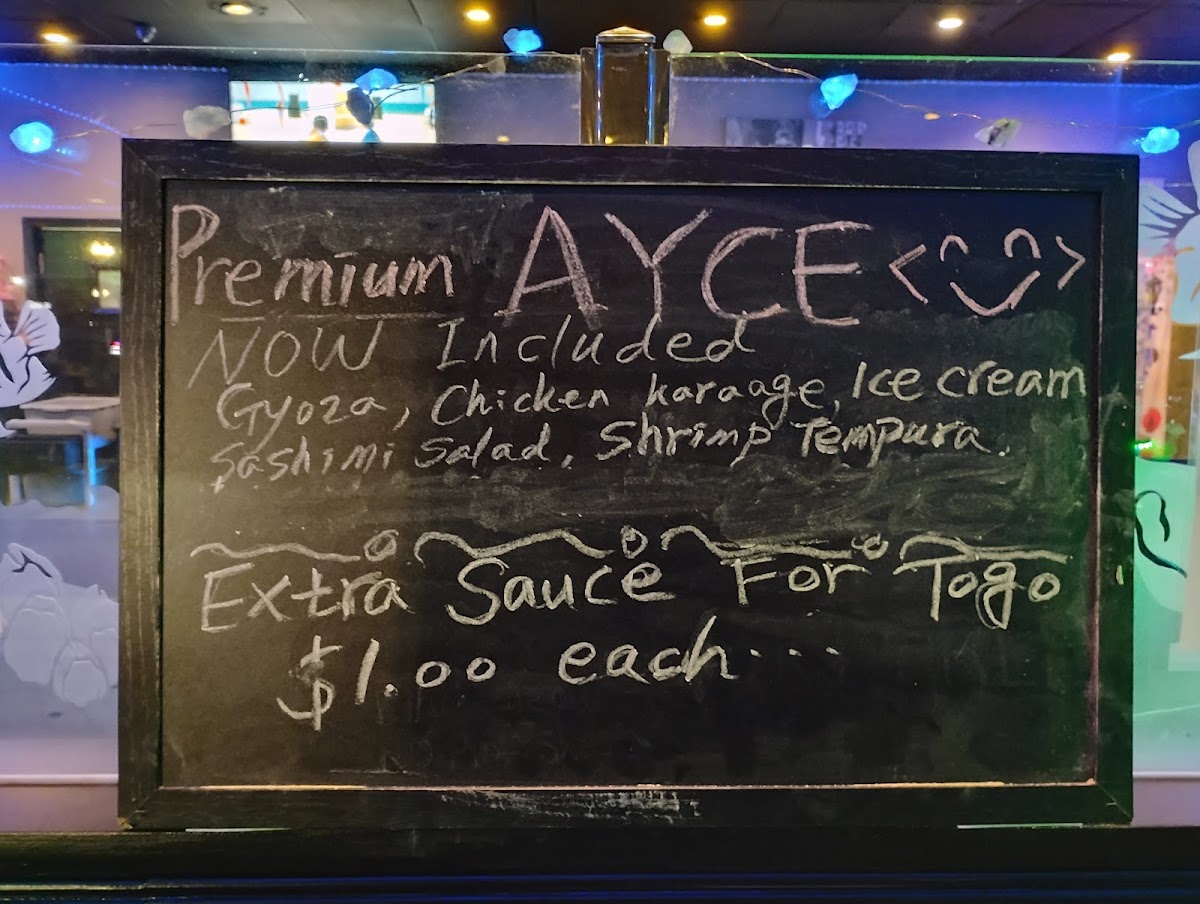 Premium AYCE
NOW Included
Gyoza, Chicken karaage, Ice cream
Sashimi Salad, Shrimp Tempura.
Extra Sauce For Togo
$1.00 each...